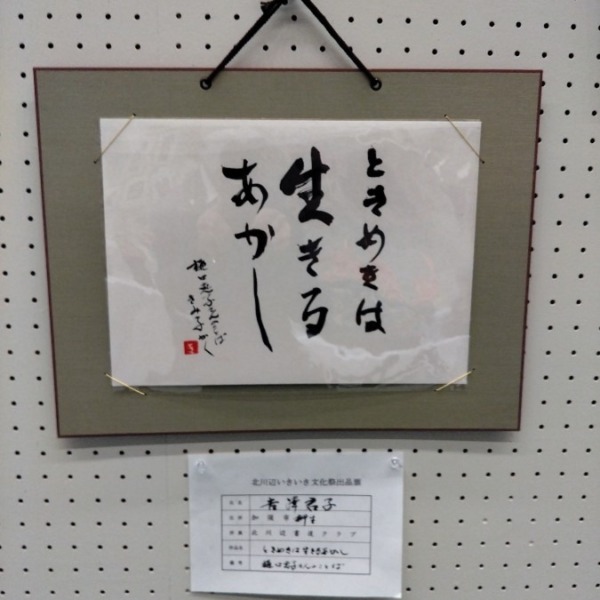 ときめきは
生きる
あかし
樋口恵子さんことば
きみ子かく
北川辺いきいき文化祭出品票
氏名
住所 加須市
所属 北川辺書道クラブ
作品名 ときめきは生きるあかし
備考 樋口恵子さんのことば